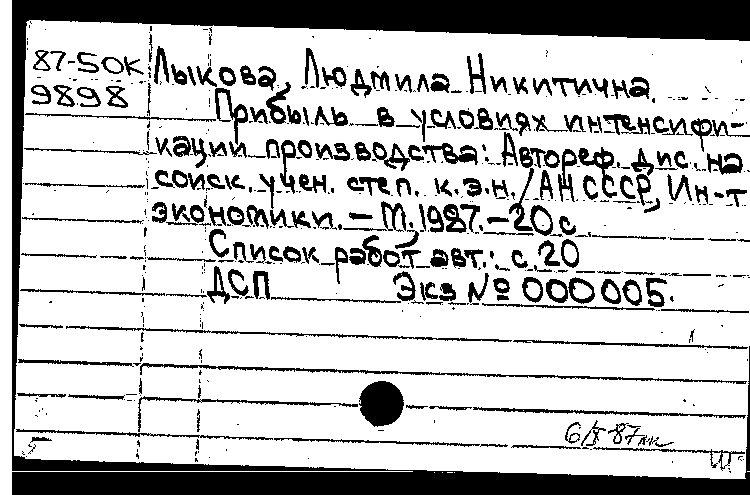 87-50К
9898
Лыкова, Людмила Никитична.
Прибыль в условиях интенсифи-
кации производства: Автореф. дис. на
соиск. учен. степ. к.э.н./АН СССР, Ин-т
экономики. – М. 1987. – 20 с.
Список работ авт.: с. 20
ДСП Экз № 000005.